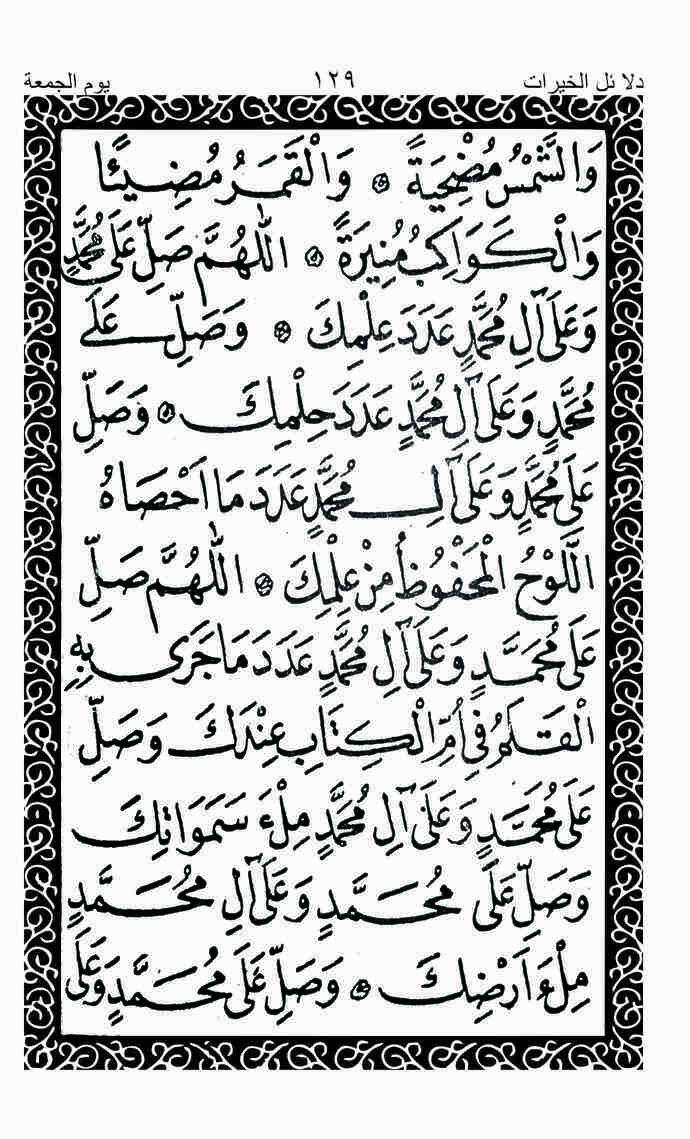 دلائل الخيرات ١٢٩ يوم الجمعة
وَالشَّمْسُ مُضْحِيَةً ۞ وَالْقَمَرُ مُضِيئًا
وَالْكَوَاكِبُ مُنِيرَةً ۞ اللّٰهُمَّ صَلِّ عَلَى مُحَمَّدٍ
وَعَلَى آلِ مُحَمَّدٍ عَدَدَ عِلْمِكَ ۞ وَصَلِّ عَلَى
مُحَمَّدٍ وَعَلَى آلِ مُحَمَّدٍ عَدَدَ حِلْمِكَ ۞ وَصَلِّ
عَلَى مُحَمَّدٍ وَعَلَى آلِ مُحَمَّدٍ عَدَدَ مَا اَحْصَاهُ
اللَّوْحُ الْمَحْفُوظُ مِنْ عِلْمِكَ ۞ اللّٰهُمَّ صَلِّ
عَلَى مُحَمَّدٍ وَعَلَى آلِ مُحَمَّدٍ عَدَدَ مَا جَرَى بِهِ
الْقَلَمُ فِي اُمِّ الْكِتَابِ عِنْدَكَ وَصَلِّ
عَلَى مُحَمَّدٍ وَعَلَى آلِ مُحَمَّدٍ مِلْءَ سَمَوَاتِكَ
وَصَلِّ عَلَى مُحَمَّدٍ وَعَلَى آلِ مُحَمَّدٍ
مِلْءَ اَرْضِكَ ۞ وَصَلِّ عَلَى مُحَمَّدٍ وَعَلَى